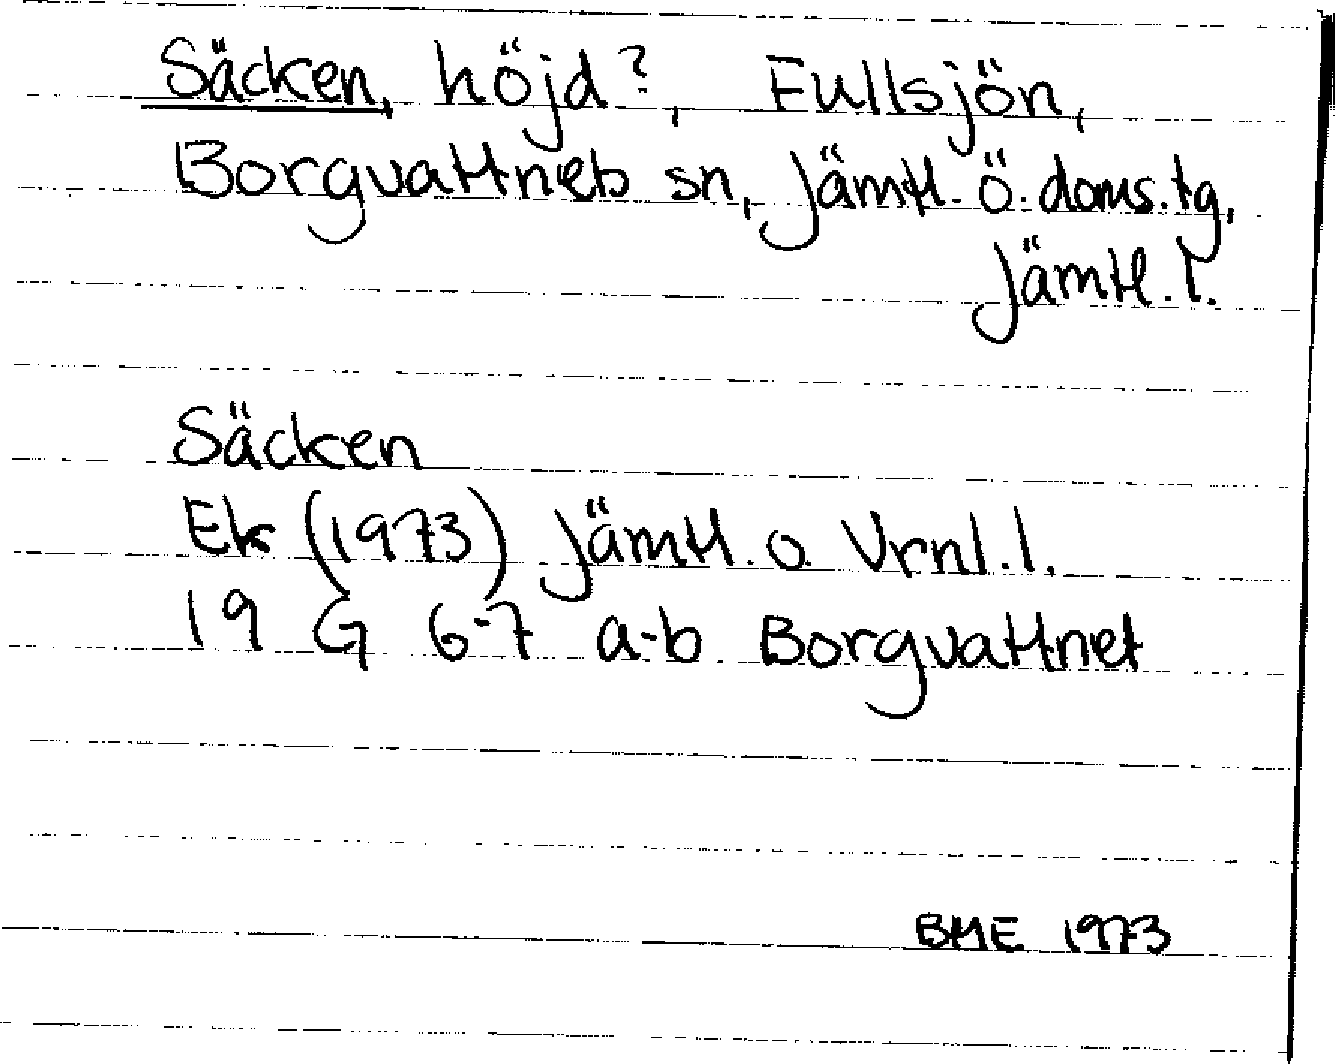 Säcken, höjd?, Fullsjön,
Borgvattnets sn, Jämtl. ö. doms. tg,
Jämtl. l.
Säcken
Ek (1973) Jämtl. o. Vrnl. l.
19 G 6-7 a-b Borgvattnet
BME 1973